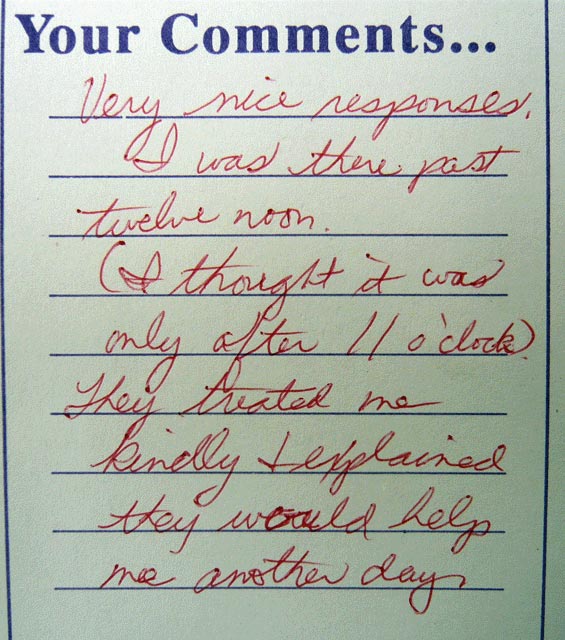 Your Comments...
Very nice responses.
I was there past
twelve noon.
(I thought it was
only after 11 o'clock).
They treated me
kindly & explained
they would help
me another day.